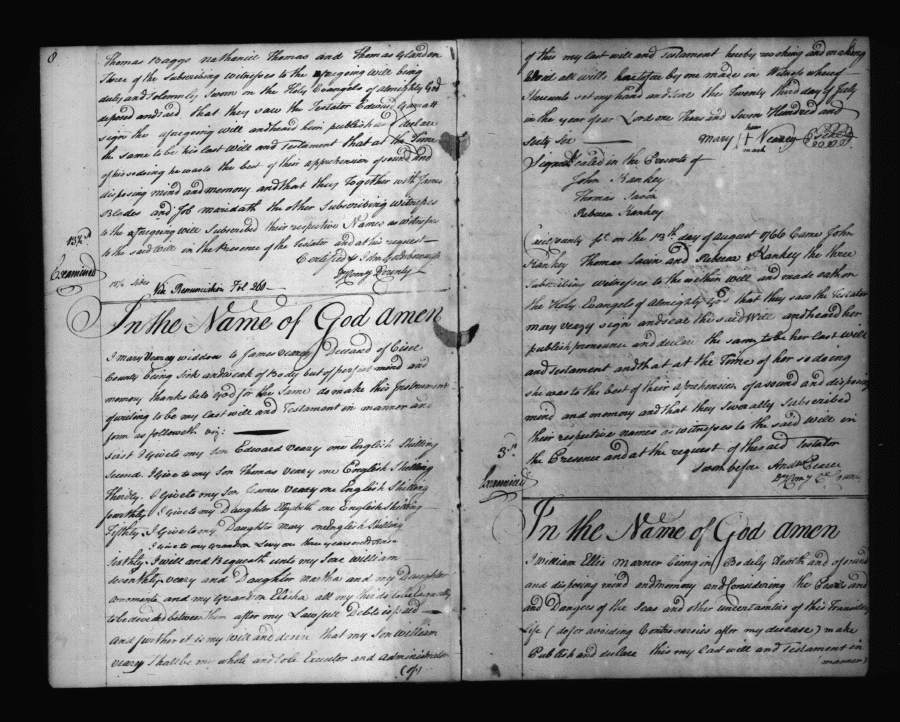 8
Thomas Baggs Nathaniel Thomas and Thomas Glanden
Three of the Subscribing witnesses to the afregoing will being
duly and Solemnly Sworn on the Holy Evangels of Almighty God
deposed and said that they saw the Testator Edward
sign the afregoing will and heard him publish and declare
the same to be his last will and Testament that at the Time
of his so doing he was to the best of their apprehension of sound and
disposing mind and memory and that they Together with James
Blades and Job the other Subscribing Witnesses
to the afregoing will Subscribed their respective Names as witnesses
to the said Will in the Presence of the Testator and at his request
Certified John Goldsborough
County
Examined
Vide Renunciation Fol 260
In the Name of God Amen
I Mary Veazey widdow to James Veazey Deceased of Cecil
County being Sick and weak of Body but of perfect mind and
memory thanks be to God for the same do make this Instrument
of writing to be my Last will and Testament in manner and
form as followeth viz:
first I Give to my Son Edward Veazy one English Shilling
Second I Give to my Son Thomas Veazy one English Shilling
Thirdly I Give to my Son James Veazy one English Shilling
fourthly I Give to my Daughter Elizabeth one English Shilling
Fifthly I Give to my Daughter Mary one English Shilling
I Give to my Grandson Levy one three year old
Sixthly I will and Bequeath unto my Sone William
Seventhly Veazy and Daughter Martha and my Daughter
and my Grandson Elisha all my
to be devided between them after my Lawfull Debts is paid
and further it is my will and desire that my Son William
Veazy Shall be my whole and Sole Executor and Administrator
(of)
of this my Last will and Testament hereby revoking and making
Void all wills heretofore by me made in Witness whereof
I hereunto set my hand and seal the Twenty third day of July
in the year of our Lord one Thous and Seven Hundred and
Sixty Six
Mary her + mark Veazey
Signed Sealed in the Presents of
John Kankey
Thomas Savin
Rebecca Kankey
Cecil County sc. on the 13th day of August 1766 Came John
Kankey Thomas Savin and Rebecca Kankey the three
Subscribing witnesses to the within will and made oath on
the Holy Evangels of Almighty God that they saw the Testator
Mary Veazy sign and seal the said Will and heard her
publish pronounce and declare the same to be her Last will
and Testament and that at the Time of her so doing
she was to the best of their apprehension of a sound and disposing
mind and memory and that they severally subscribed
their respective names as witnesses to the said will in
the Presence and at the request of the said Testator
Sworn before Andw Pearce
Examined
In the Name of God Amen
I William Ellis Marner being in Bodily Health and of sound
and disposing mind and memory and Considering the Perils and
and Dangers of the Seas and other uncertainties of this Transitory
Life (do for avoiding Controversies after my decease) make
Publish and declare this my Last will and Testament in
manner)